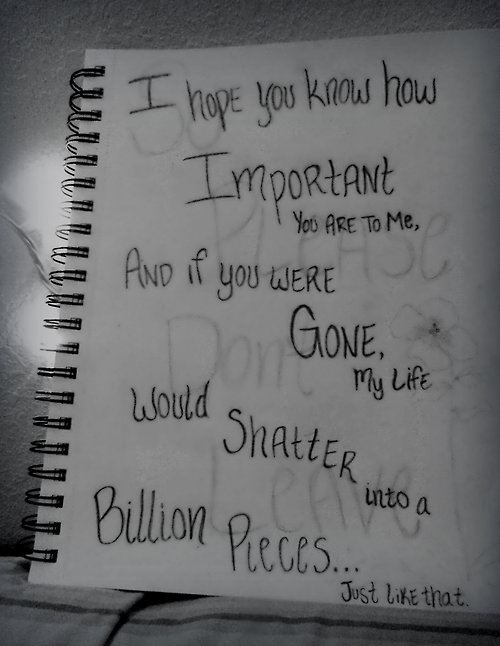 I hope you know how
Important
You are to me,
And if you were
Gone,
My life
would
Shatter
into a
Billion
Pieces...
Just like that.
So
Please
Dont
Leave!